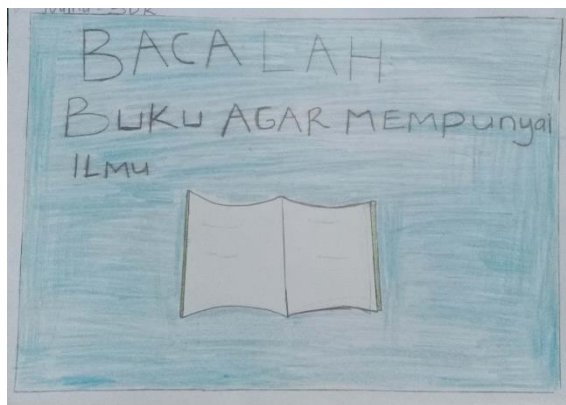 BACALAH
BUKU AGAR MEMPunyai
ILmu